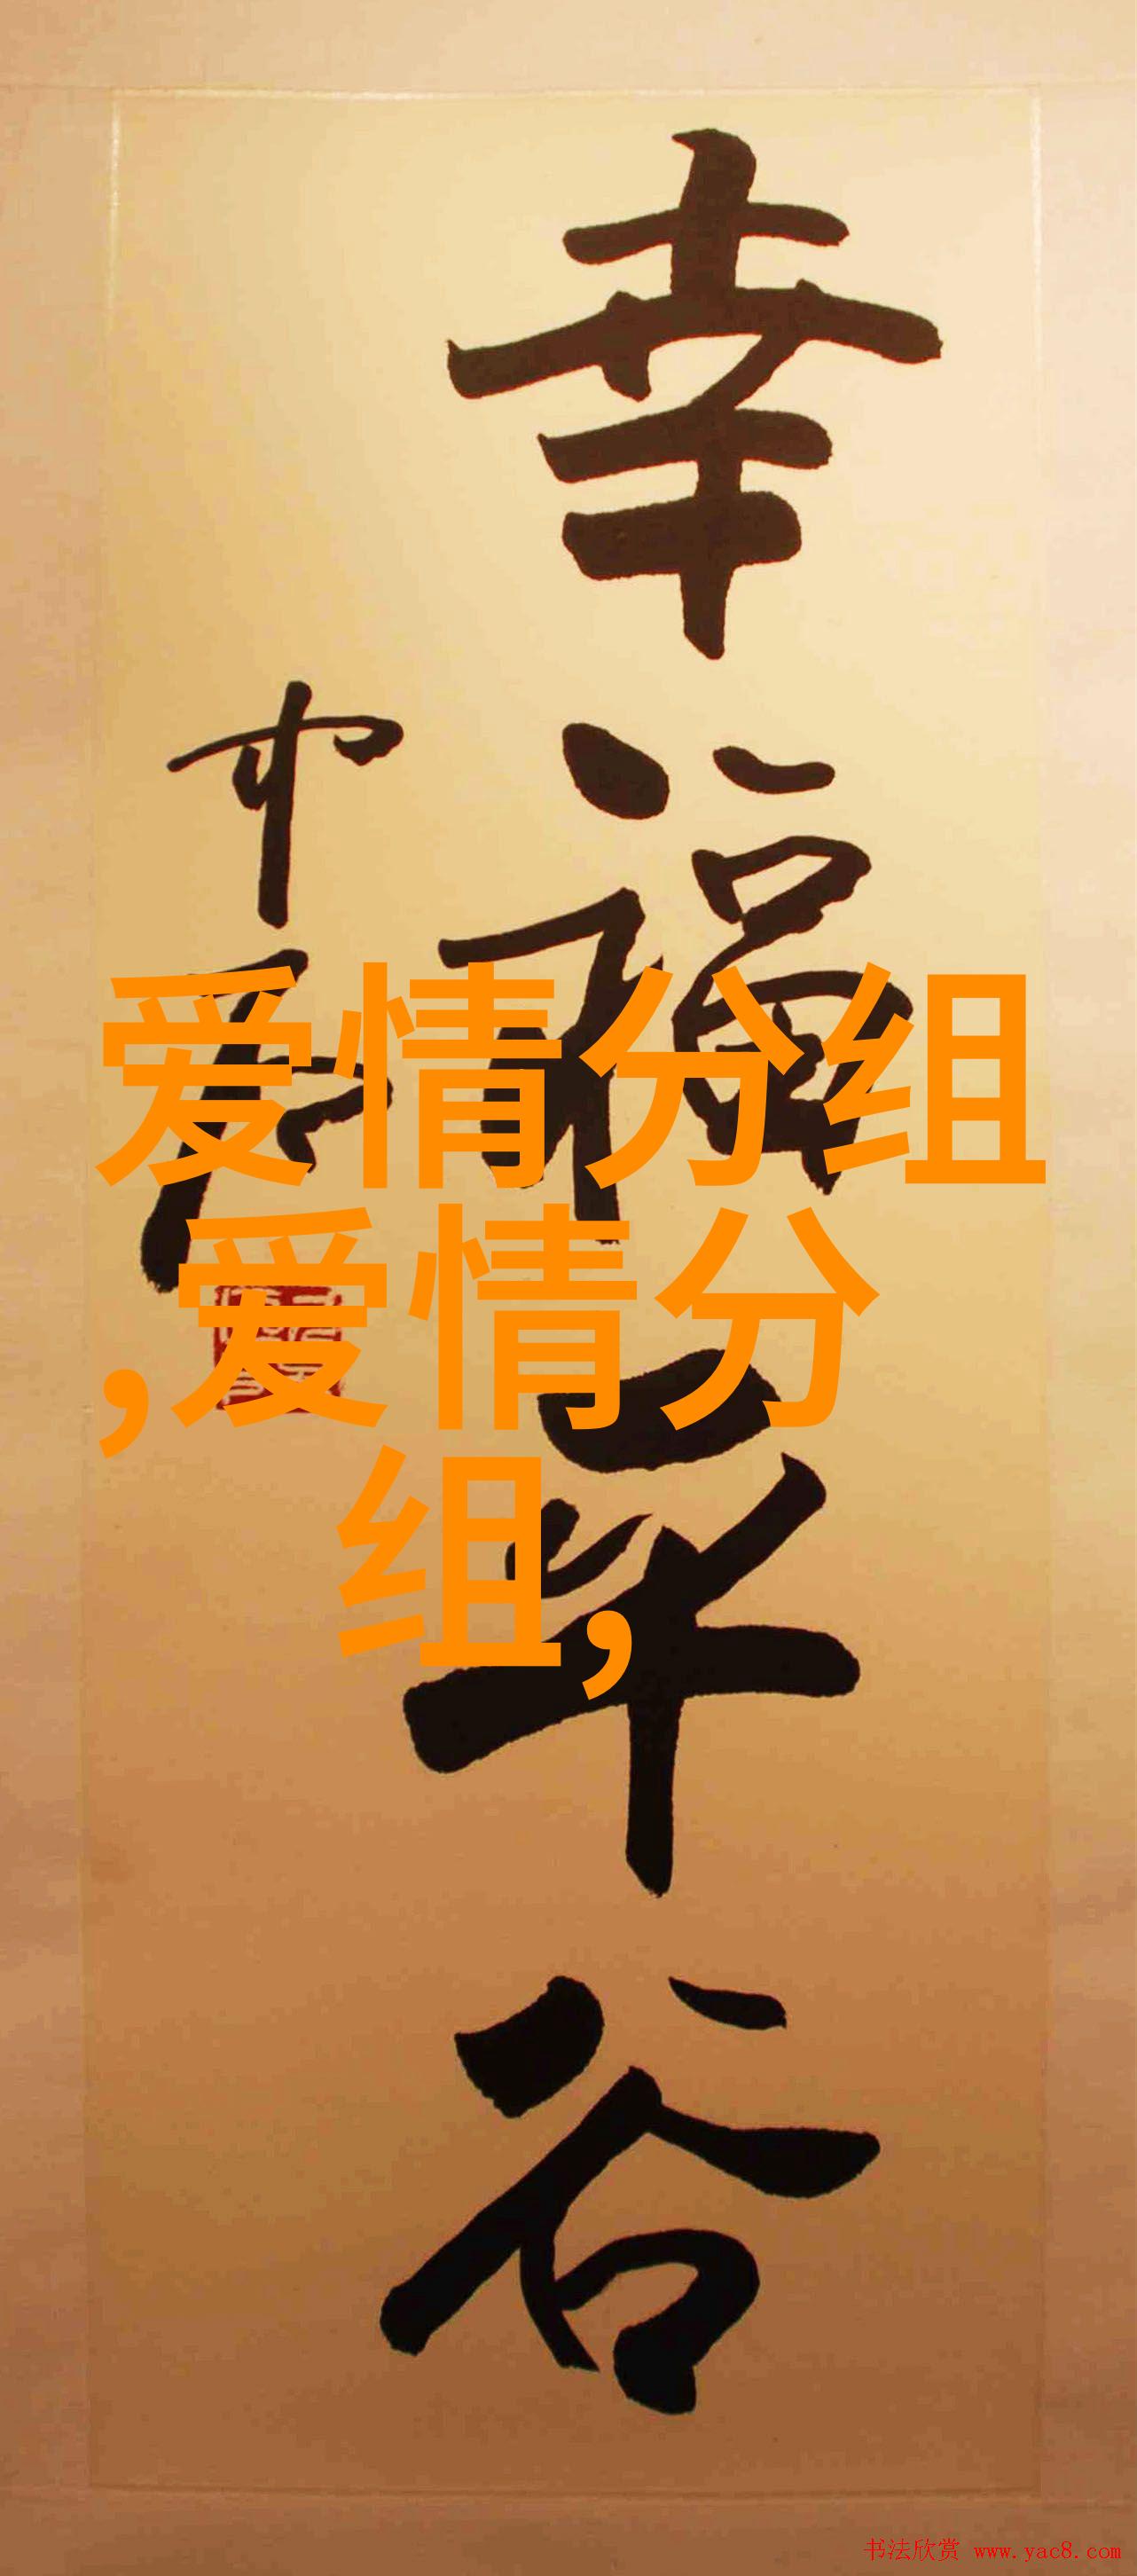 幸福平谷
中石
爱情分组
,爱情分
组,
书法欣赏 www.yac8.com